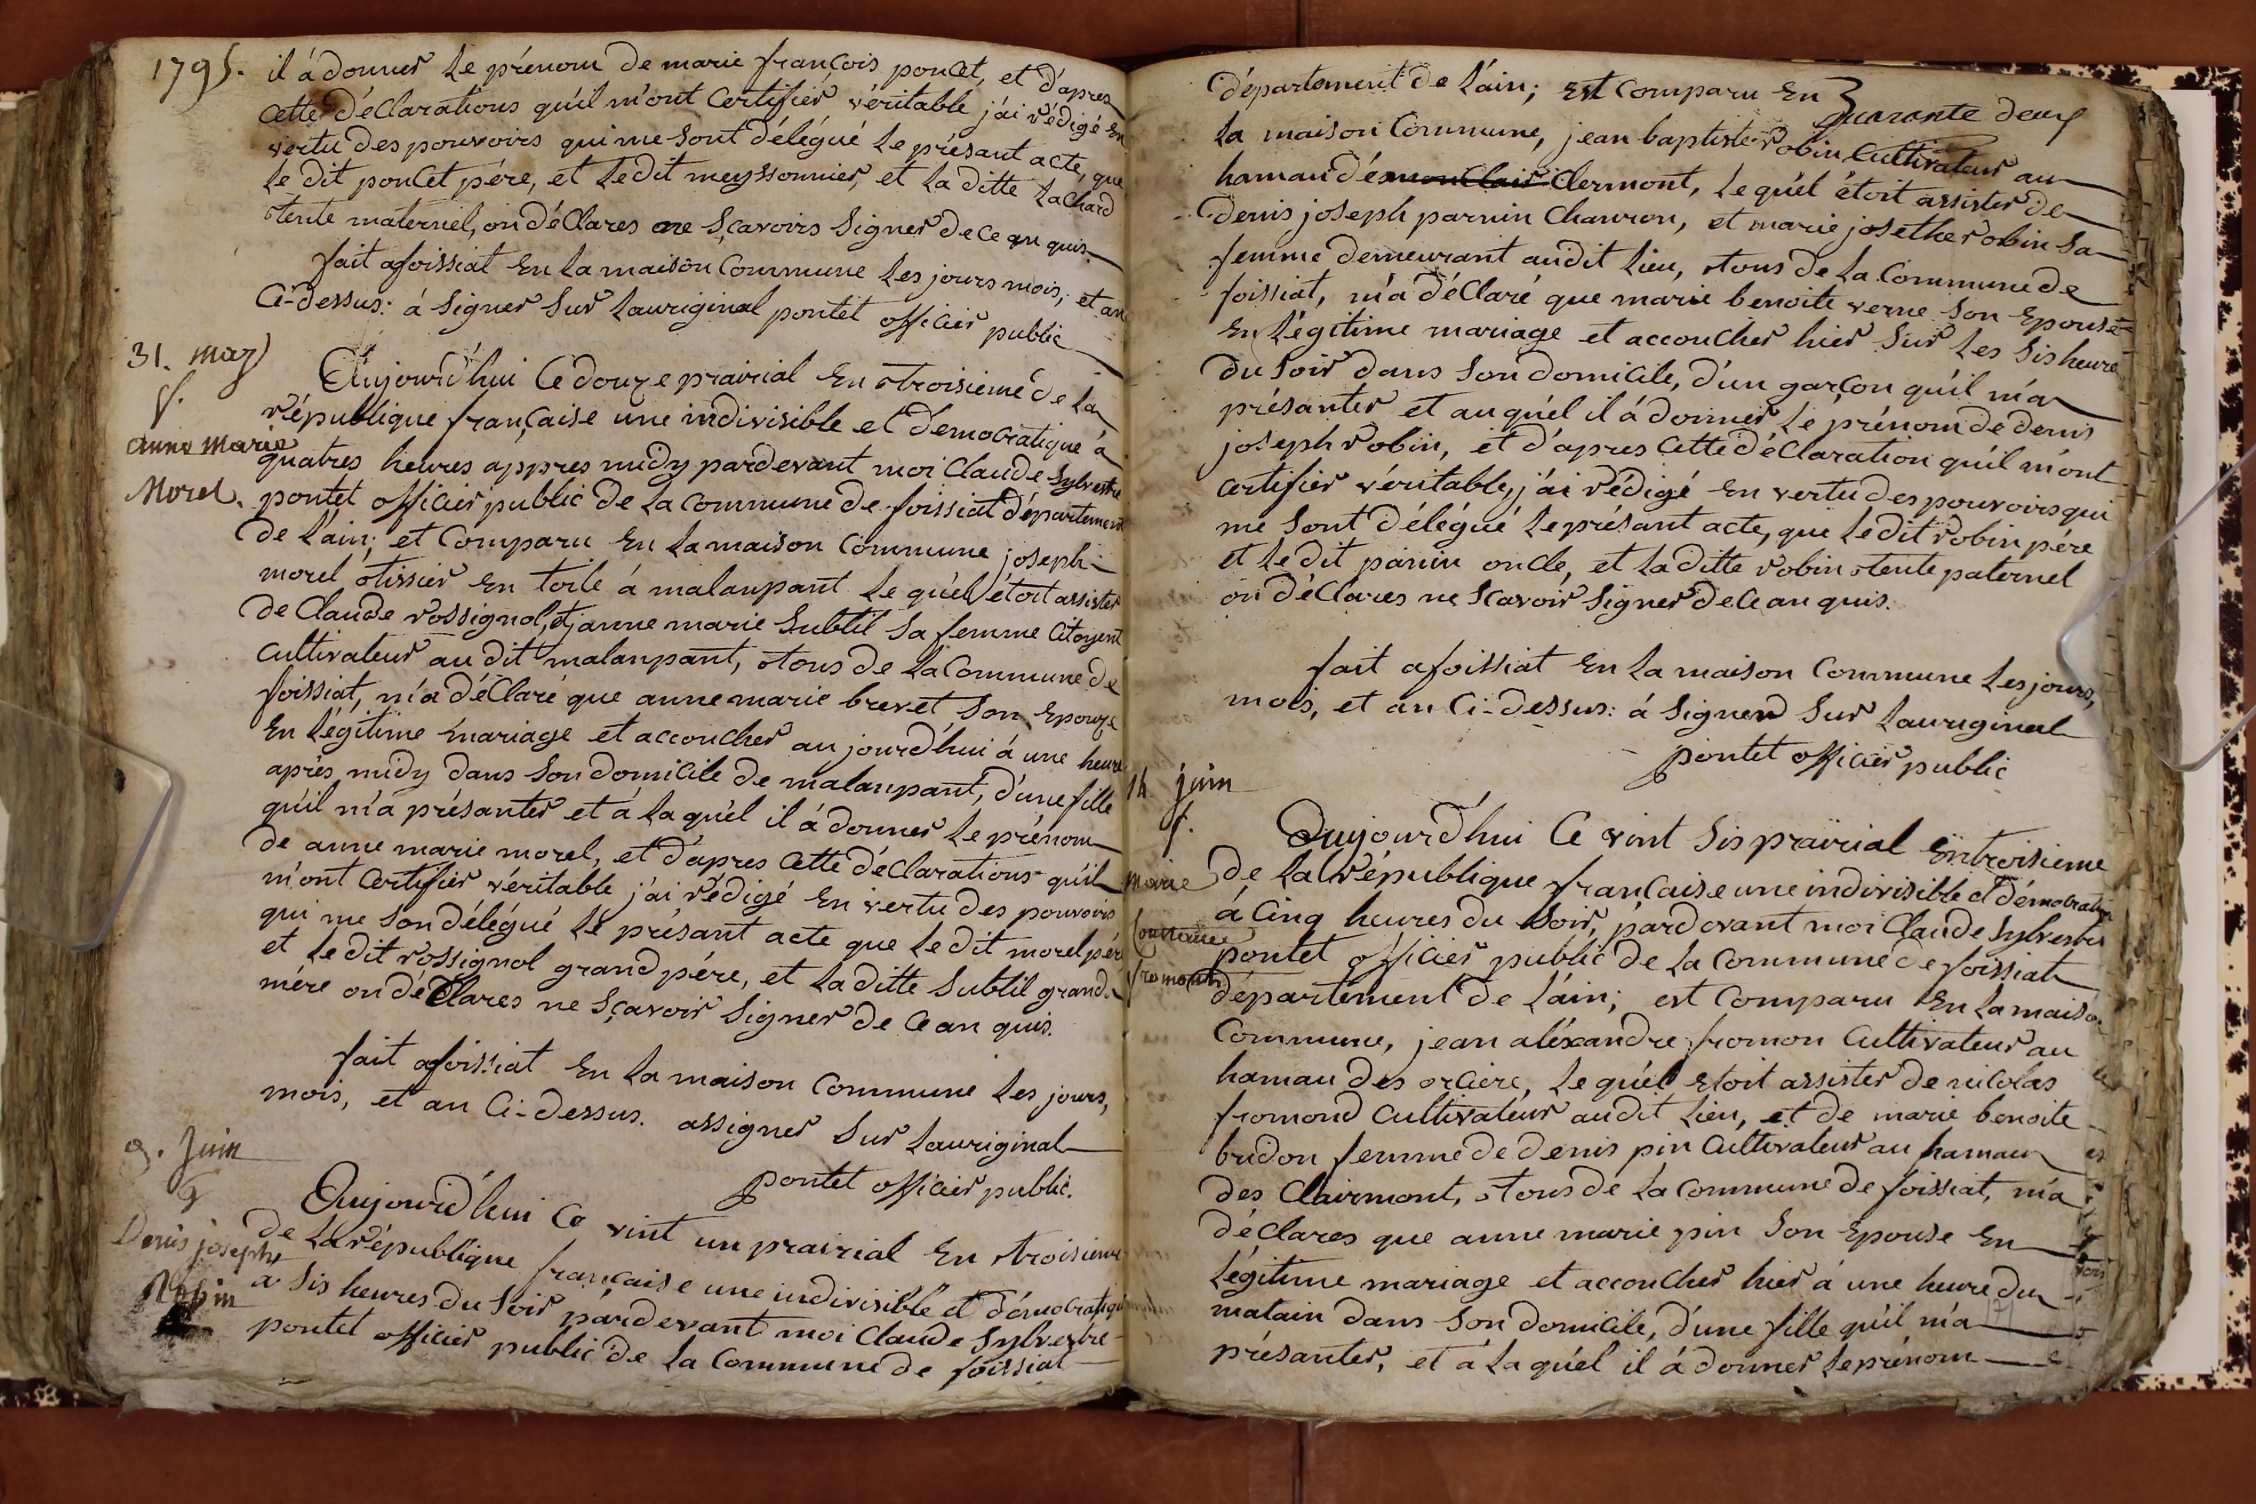 1795.
il á donner le prénom de marie françois poncet, et d'apres
cette déclarations qu'il m'ont certifier véritable j'ai rédigé en
vertu des pouvoirs qui me sont délégué le présant acte, que
le dit poncet pére, et le dit meyssonnier, et la ditte lachard
tente maternel, on déclares ne sçavoirs signer de ce en quis.
fait a foissiat en la maison commune les jours mois, et an
ci-dessus: á signer sur lauriginal pontet officier public
31. may
f.
anne marie
Morel.
Aujourd'hui ce douze prairial en troisieme de la
république française une indivisible et démocratique à
quatres heures appres midy pardevant moi claude sylvestre
pontet officier public de la commune de foissiat département
de l'ain; et comparu en la maison commune joseph
morel tissier en toile á malaupant le qu'el étoit assister
de claude rossignol, et janne marie subtil sa femme citoyent
cultivateur au dit malaupant, tous de la commune de
foissiat, m'a déclaré que anne marie brevet son epouze
en légitime mariage et accoucher aujourd'hui á une heure
aprés midy dans son domicile de malaupant, d'une fille
qu'il m'a présanter et á la qu'el il á donner le prénom
de anne marie morel, et d'apres cette déclarations qu'il
m'ont certifier véritable j'ai rédigé en vertu des pouvoirs
qui me son délégué le présant acte que le dit morel pére
et le dit rossignol grand pére, et la ditte subtil grand
mére on déclares ne sçavoir signer de ce an quis.
fait a foissiat en la maison commune les jours,
mois, et an ci-dessus. assigner sur lauriginal
pontet officier public.
9. Juin
g
Denis joseph
Robin
Aujourd'hui ce vint un prairial en troisieme
de la république française une indivisible et démocratique
a sis heures du soir pardevant moi claude sylvestre
pontet officier public de la commune de foissiat
quarante deux
département de l'ain; est comparu en
la maison commune, jean baptiste robin cultivateur au
hamau dés clermont, le qu'el étoit assister de
denis joseph parnin chauron, et marie josethe robin sa
femme demeurant audit lieu, tous de la commune de
foissiat, m'a déclaré que marie benoite verne son epouse
en légitime mariage et accoucher hier sur les sis heure
du soir dans son domicile, d'un garçon qu'il m'a
présanter et au qu'el il á donner le prénom de denis
joseph robin, et d'apres cette déclaration qu'il m'ont
certifier véritable, j'ai rédigé en vertu des pouvoirs qui
me sont délégué le présant acte, que le dit robin pére
et le dit panin oncle, et la ditte robin tente paternel
on déclares ne sçavoir signer de ce an quis.
fait a foissiat en la maison commune les jours,
mois, et an ci-dessus: á signer sur lauriginal
pontet officier public
14 juin
f.
marie
fromont
Aujourd'hui ce vint sis prairial en troisieme
de la république française une indivisible et démocratique
á cinq heures du soir, pardevant moi claude sylvestre
pontet officier public de la commune de foissiat
département de l'ain; est comparu en la maison
commune, jean aléxandre fromon cultivateur au
hamau des orcière, le qu'el etoit assister de nicolas
fromond cultivateur audit lieu, et de marie benoite
bridon femme de denis pin cultivateur au hamau
des clairmont, tous de la commune de foissiat, m'a
déclares que anne marie pin son epouse en
légitime mariage et accoucher hier á une heure du
matain dans son domicile, d'une fille qu'il m'a
présanter, et á la qu'el il á donner le prénom